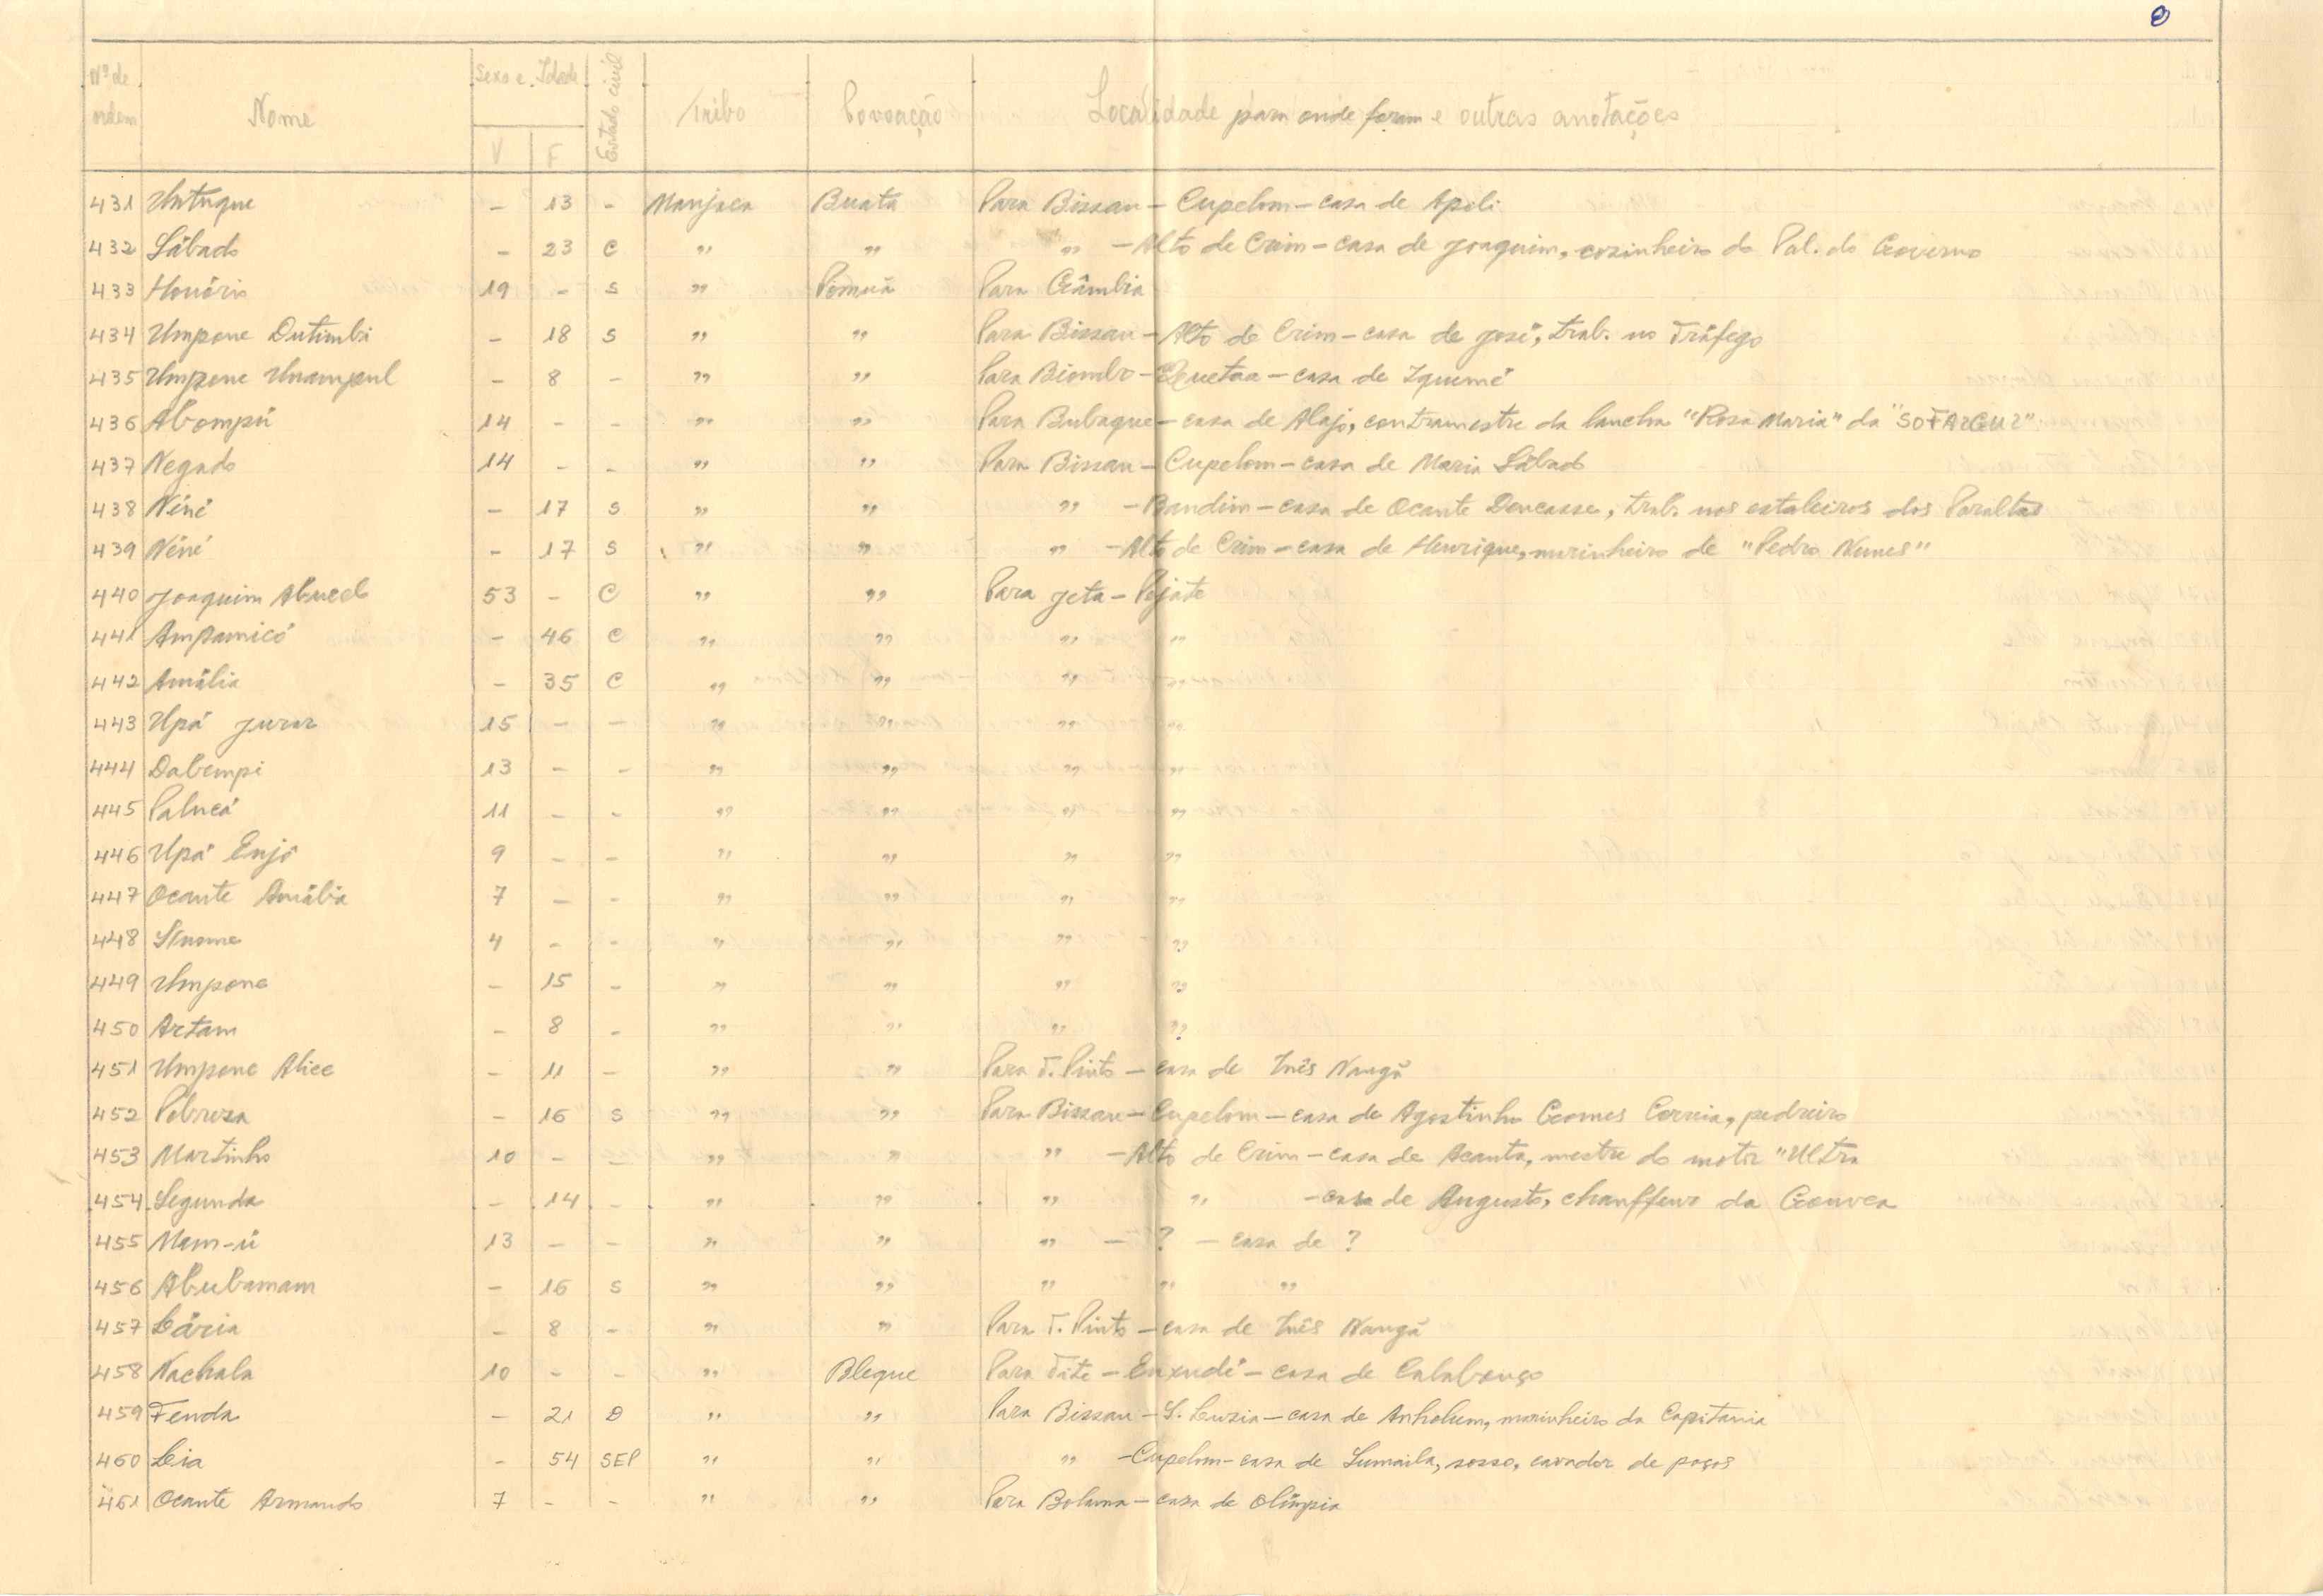 8
Nº de ordem Nome Sexo e Idade V F Estado civil Tribo Povoação Localidade para onde foram e outras anotações
431 Untuque - 13 - Manjaca Buatá Para Bissau - Cupelom - casa de Apeli
432 Sábado - 23 C " " " - Alto de Crim - casa de Joaquim, cozinheiro do Pal. do Governo
433 Honório 19 - S " Pómuá Para Gâmbia
434 Umpone Dutimbi - 18 S " " Para Bissau - Alto de Crim - casa de José, trab. no Tráfego
435 Umpone Unampul - 8 - " " Para Biombo - Quetaa - casa de Iquemé
436 Abompú 14 - - " " Para Bubaque - casa de Alajo, contramestre da lancha "Rosa Maria" da
437 Negado 14 - - " " Para Bissau - Cupelom - casa de Maria Sábado
438 Néné - 17 S " " " - Bandim - casa de Ocante Doucasse, trab. nos estaleiros dos
439 Néné - 17 S " " " - Alto de Crim - casa de Henrique, marinheiro de "Pedro Nunes"
440 Joaquim 53 - C " " Para Jeta - Pejate
441 Ampamicó - 46 C " " " "
442 Amália - 35 C " " " "
443 Upá Jurur 15 - - " " " "
444 Dabempi 13 - - " " " "
445 Palucá 11 - - " " " "
446 Upá Enjó 9 - - " " " "
447 Ocante Amália 7 - - " " " "
448 4 - - " " " "
449 Umpone - 15 - " " " "
450 Artam - 8 - " " " "
451 Umpone Alice - 11 - " " Para T. Pinto - casa de Inês Nangá
452 Pobreza - 16 S " " Para Bissau - Cupelom - casa de Agostinho Gomes Correia, pedreiro
453 Martinho 10 - - " " " - Alto de Crim - casa de Acanta, mestre do motor "Ultra
454 Segunda - 14 - " " " " - casa de Augusto, chauffeur da Gouvea
455 Mam-ú 13 - - " " " - ? - casa de ?
456 Abubamam - 16 S " " " " "
457 Lária - 8 - " " Para T. Pinto - casa de Inês Nangá
458 Nachala 10 - - " Bleque Para Tite - Enxudé - casa de Calabouço
459 Fenda - 21 D " " Para Bissau - S. Luzia - casa de Anholum, marinheiro da Capitania
460 Lia - 54 SEP " " " - Cupelom - casa de Sumaila, sosso, cavador de poços
461 Ocante Armando 7 - - " " Para Bolama - casa de Olímpia